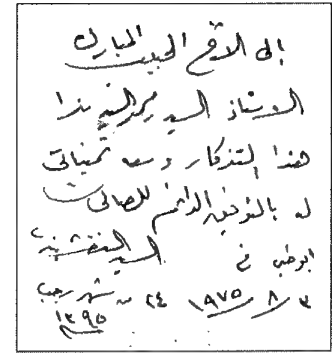 إلى الأخ الحبيب المبارك
الأستاذ السيد ندا
هذا التذكار ومعه تمنياتي
له بالتوفيق الدائم
السيد
أبو ظبي في
٣ / ٨ / ١٩٧٥ ٢٤ من شهر رجب
١٣٩٥